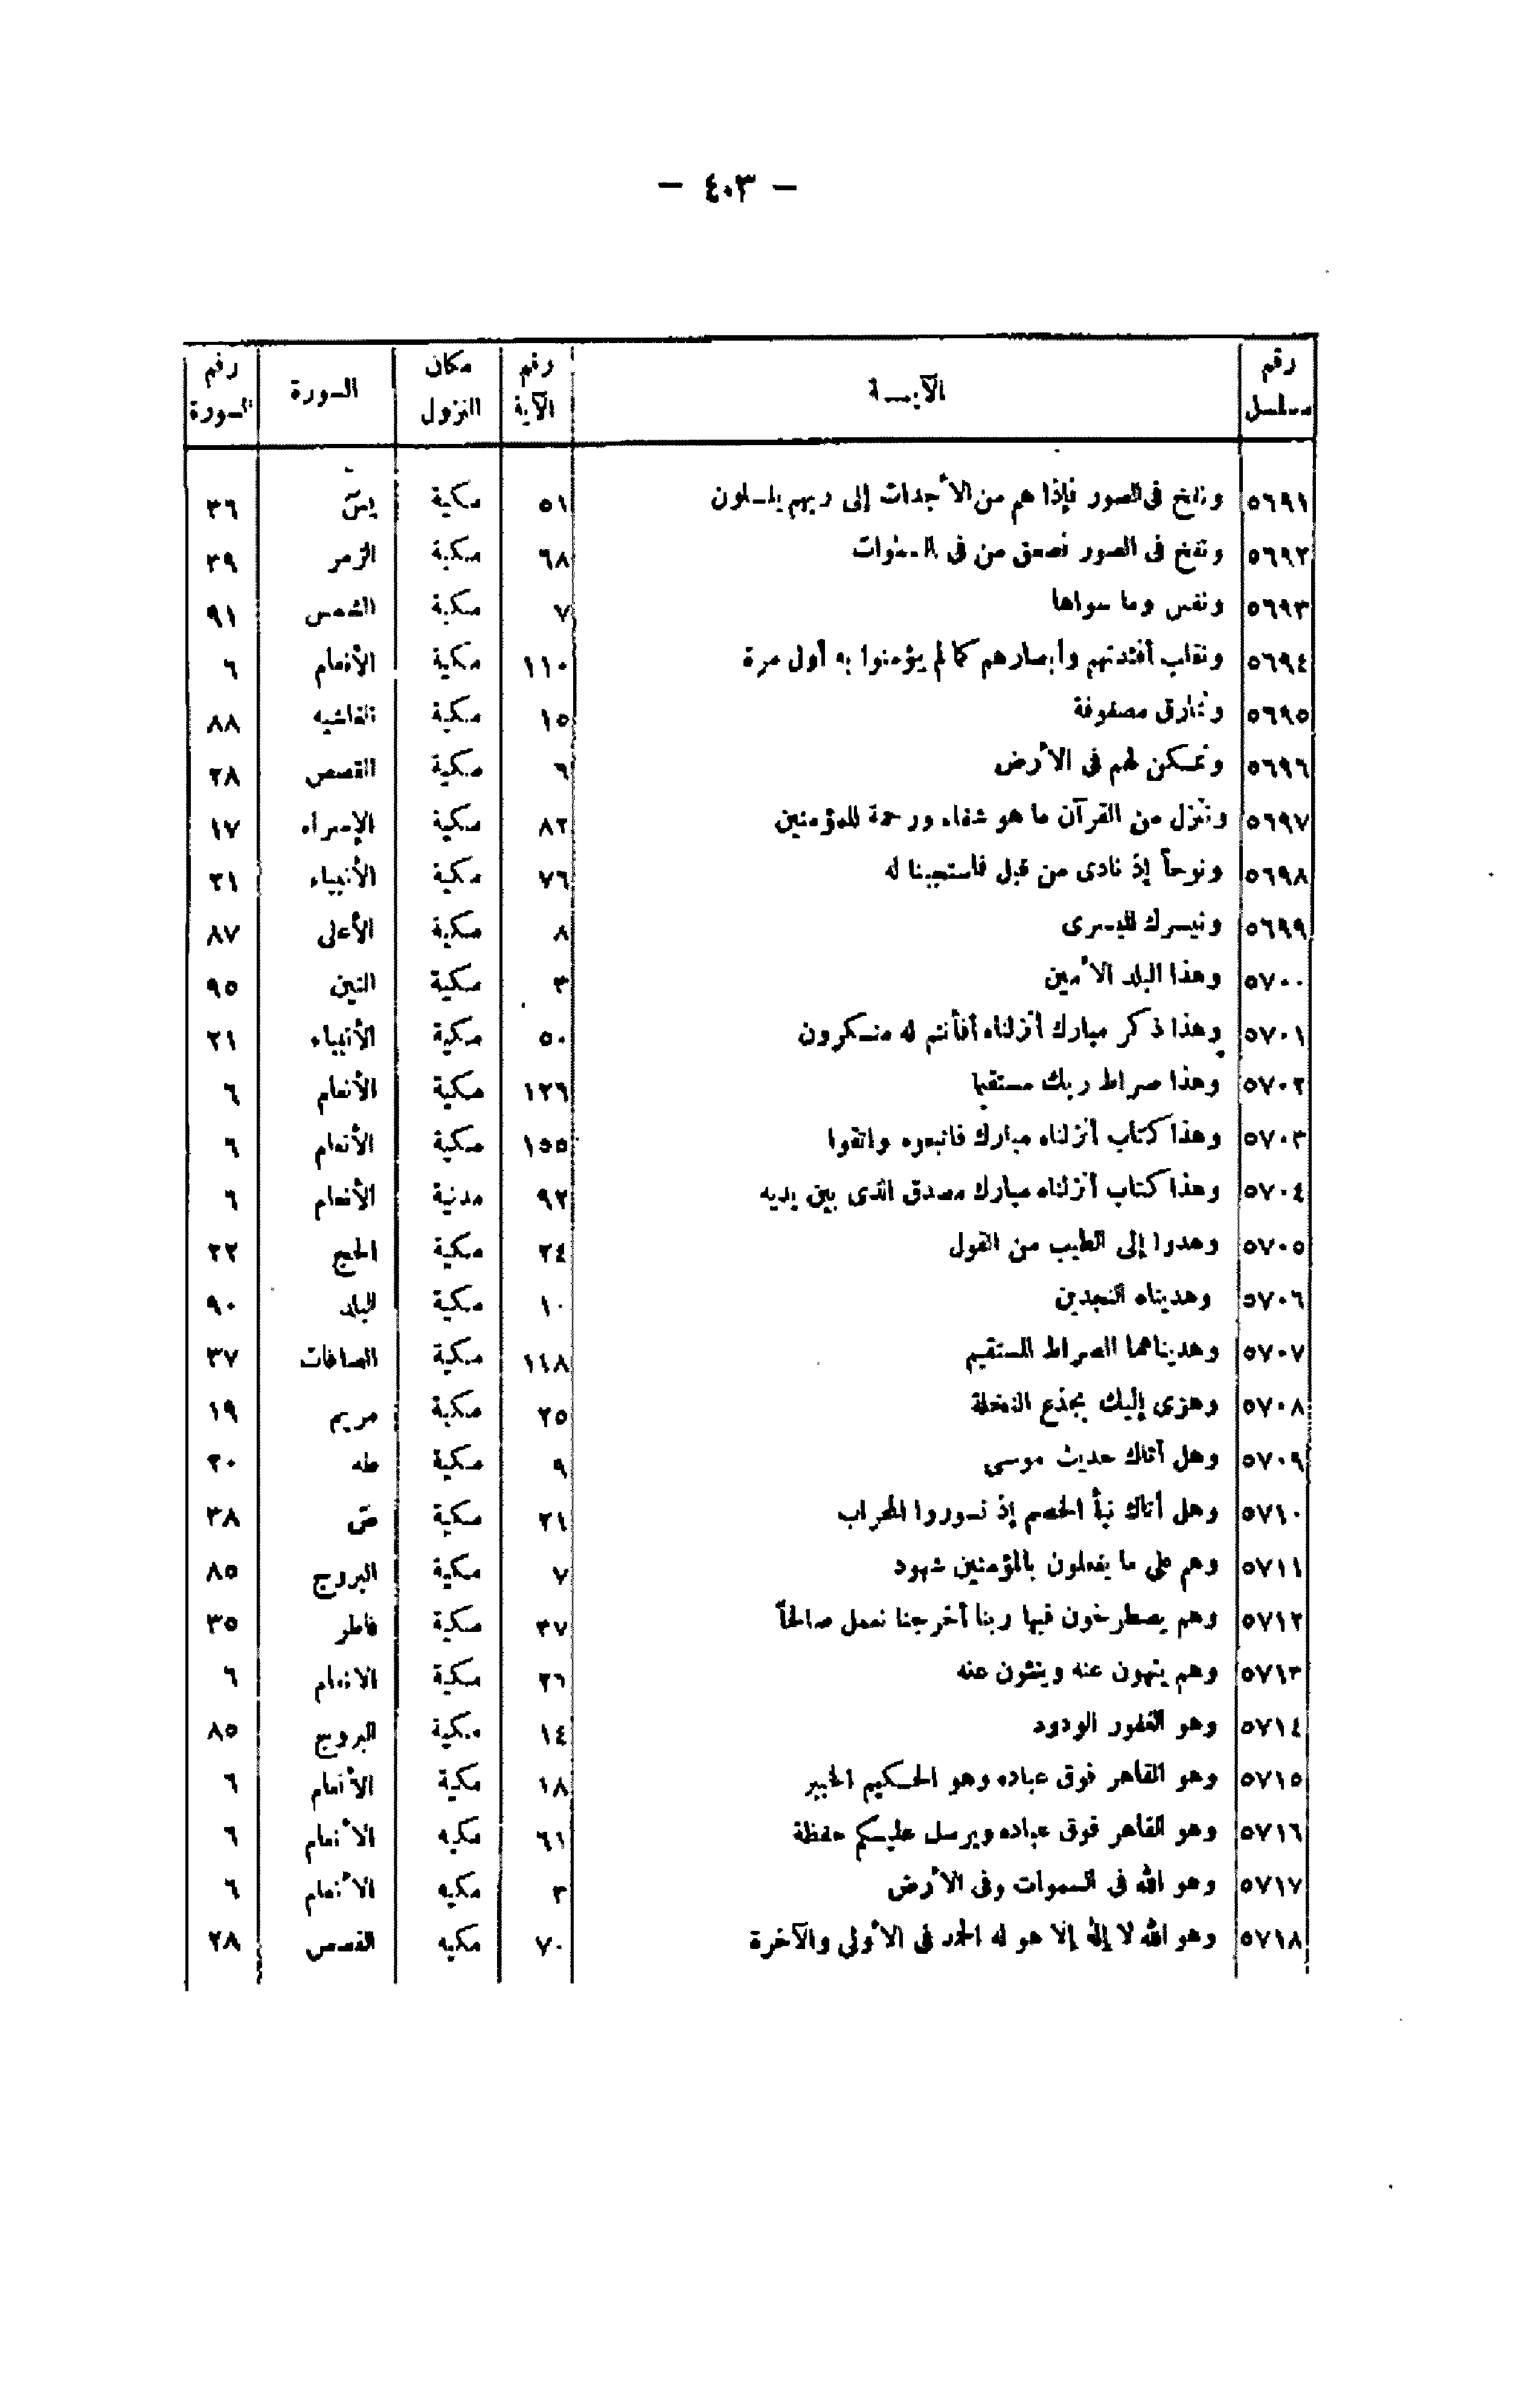 — ٤٠٣ —
رقم مسلسل | الآيـــة | رقم الآية | مكان النزول | السورة | رقم السورة
٥٦٩١ | ونفخ فى الصور فإذا هم من الأجداث إلى ربهم ينسلون | ٥١ | مكية | يس | ٣٦
٥٦٩٢ | ونفخ فى الصور فصعق من فى السموات | ٦٨ | مكية | الزمر | ٣٩
٥٦٩٣ | ونفس وما سواها | ٧ | مكية | الشمس | ٩١
٥٦٩٤ | ونقلب أفئدتهم وأبصارهم كما لم يؤمنوا به أول مرة | ١١٠ | مكية | الأنعام | ٦
٥٦٩٥ | ونمارق مصفوفة | ١٥ | مكية | الغاشيه | ٨٨
٥٦٩٦ | ونمكن لهم فى الأرض | ٦ | مكية | القصص | ٢٨
٥٦٩٧ | وننزل من القرآن ما هو شفاء ورحمة للمؤمنين | ٨٢ | مكية | الإسراء | ١٧
٥٦٩٨ | ونوحاً إذ نادى من قبل فاستجبنا له | ٧٦ | مكية | الأنبياء | ٢١
٥٦٩٩ | ونيسرك لليسرى | ٨ | مكية | الأعلى | ٨٧
٥٧٠٠ | وهذا البلد الأمين | ٣ | مكية | التين | ٩٥
٥٧٠١ | وهذا ذكر مبارك أنزلناه أفأنتم له منكرون | ٥٠ | مكية | الأنبياء | ٢١
٥٧٠٢ | وهذا صراط ربك مستقيما | ١٢٦ | مكية | الأنعام | ٦
٥٧٠٣ | وهذا كتاب أنزلناه مبارك فاتبعوه واتقوا | ١٥٥ | مكية | الأنعام | ٦
٥٧٠٤ | وهذا كتاب أنزلناه مبارك مصدق الذى بين يديه | ٩٢ | مدنية | الأنعام | ٦
٥٧٠٥ | وهدوا إلى الطيب من القول | ٢٤ | مكية | الحج | ٢٢
٥٧٠٦ | وهديناه النجدين | ١٠ | مكية | البلد | ٩٠
٥٧٠٧ | وهديناهما الصراط المستقيم | ١١٨ | مكية | الصافات | ٣٧
٥٧٠٨ | وهزى إليك بجذع النخلة | ٢٥ | مكية | مريم | ١٩
٥٧٠٩ | وهل أتاك حديث موسى | ٩ | مكية | طه | ٢٠
٥٧١٠ | وهل أتاك نبأ الخصم إذ تسوروا المحراب | ٢١ | مكية | ص | ٣٨
٥٧١١ | وهم على ما يفعلون بالمؤمنين شهود | ٧ | مكية | البروج | ٨٥
٥٧١٢ | وهم يصطرخون فيها ربنا أخرجنا نعمل صالحاً | ٣٧ | مكية | فاطر | ٣٥
٥٧١٣ | وهم ينهون عنه وينئون عنه | ٢٦ | مكية | الانعام | ٦
٥٧١٤ | وهو الغفور الودود | ١٤ | مكية | البروج | ٨٥
٥٧١٥ | وهو القاهر فوق عباده وهو الحكيم الخبير | ١٨ | مكية | الأنعام | ٦
٥٧١٦ | وهو القاهر فوق عباده ويرسل عليكم حفظة | ٦١ | مكيه | الأنعام | ٦
٥٧١٧ | وهو الله فى السموات وفى الأرض | ٣ | مكيه | الأنعام | ٦
٥٧١٨ | وهو الله لا إله إلا هو له الحمد فى الأولى والآخرة | ٧٠ | مكيه | القصص | ٢٨